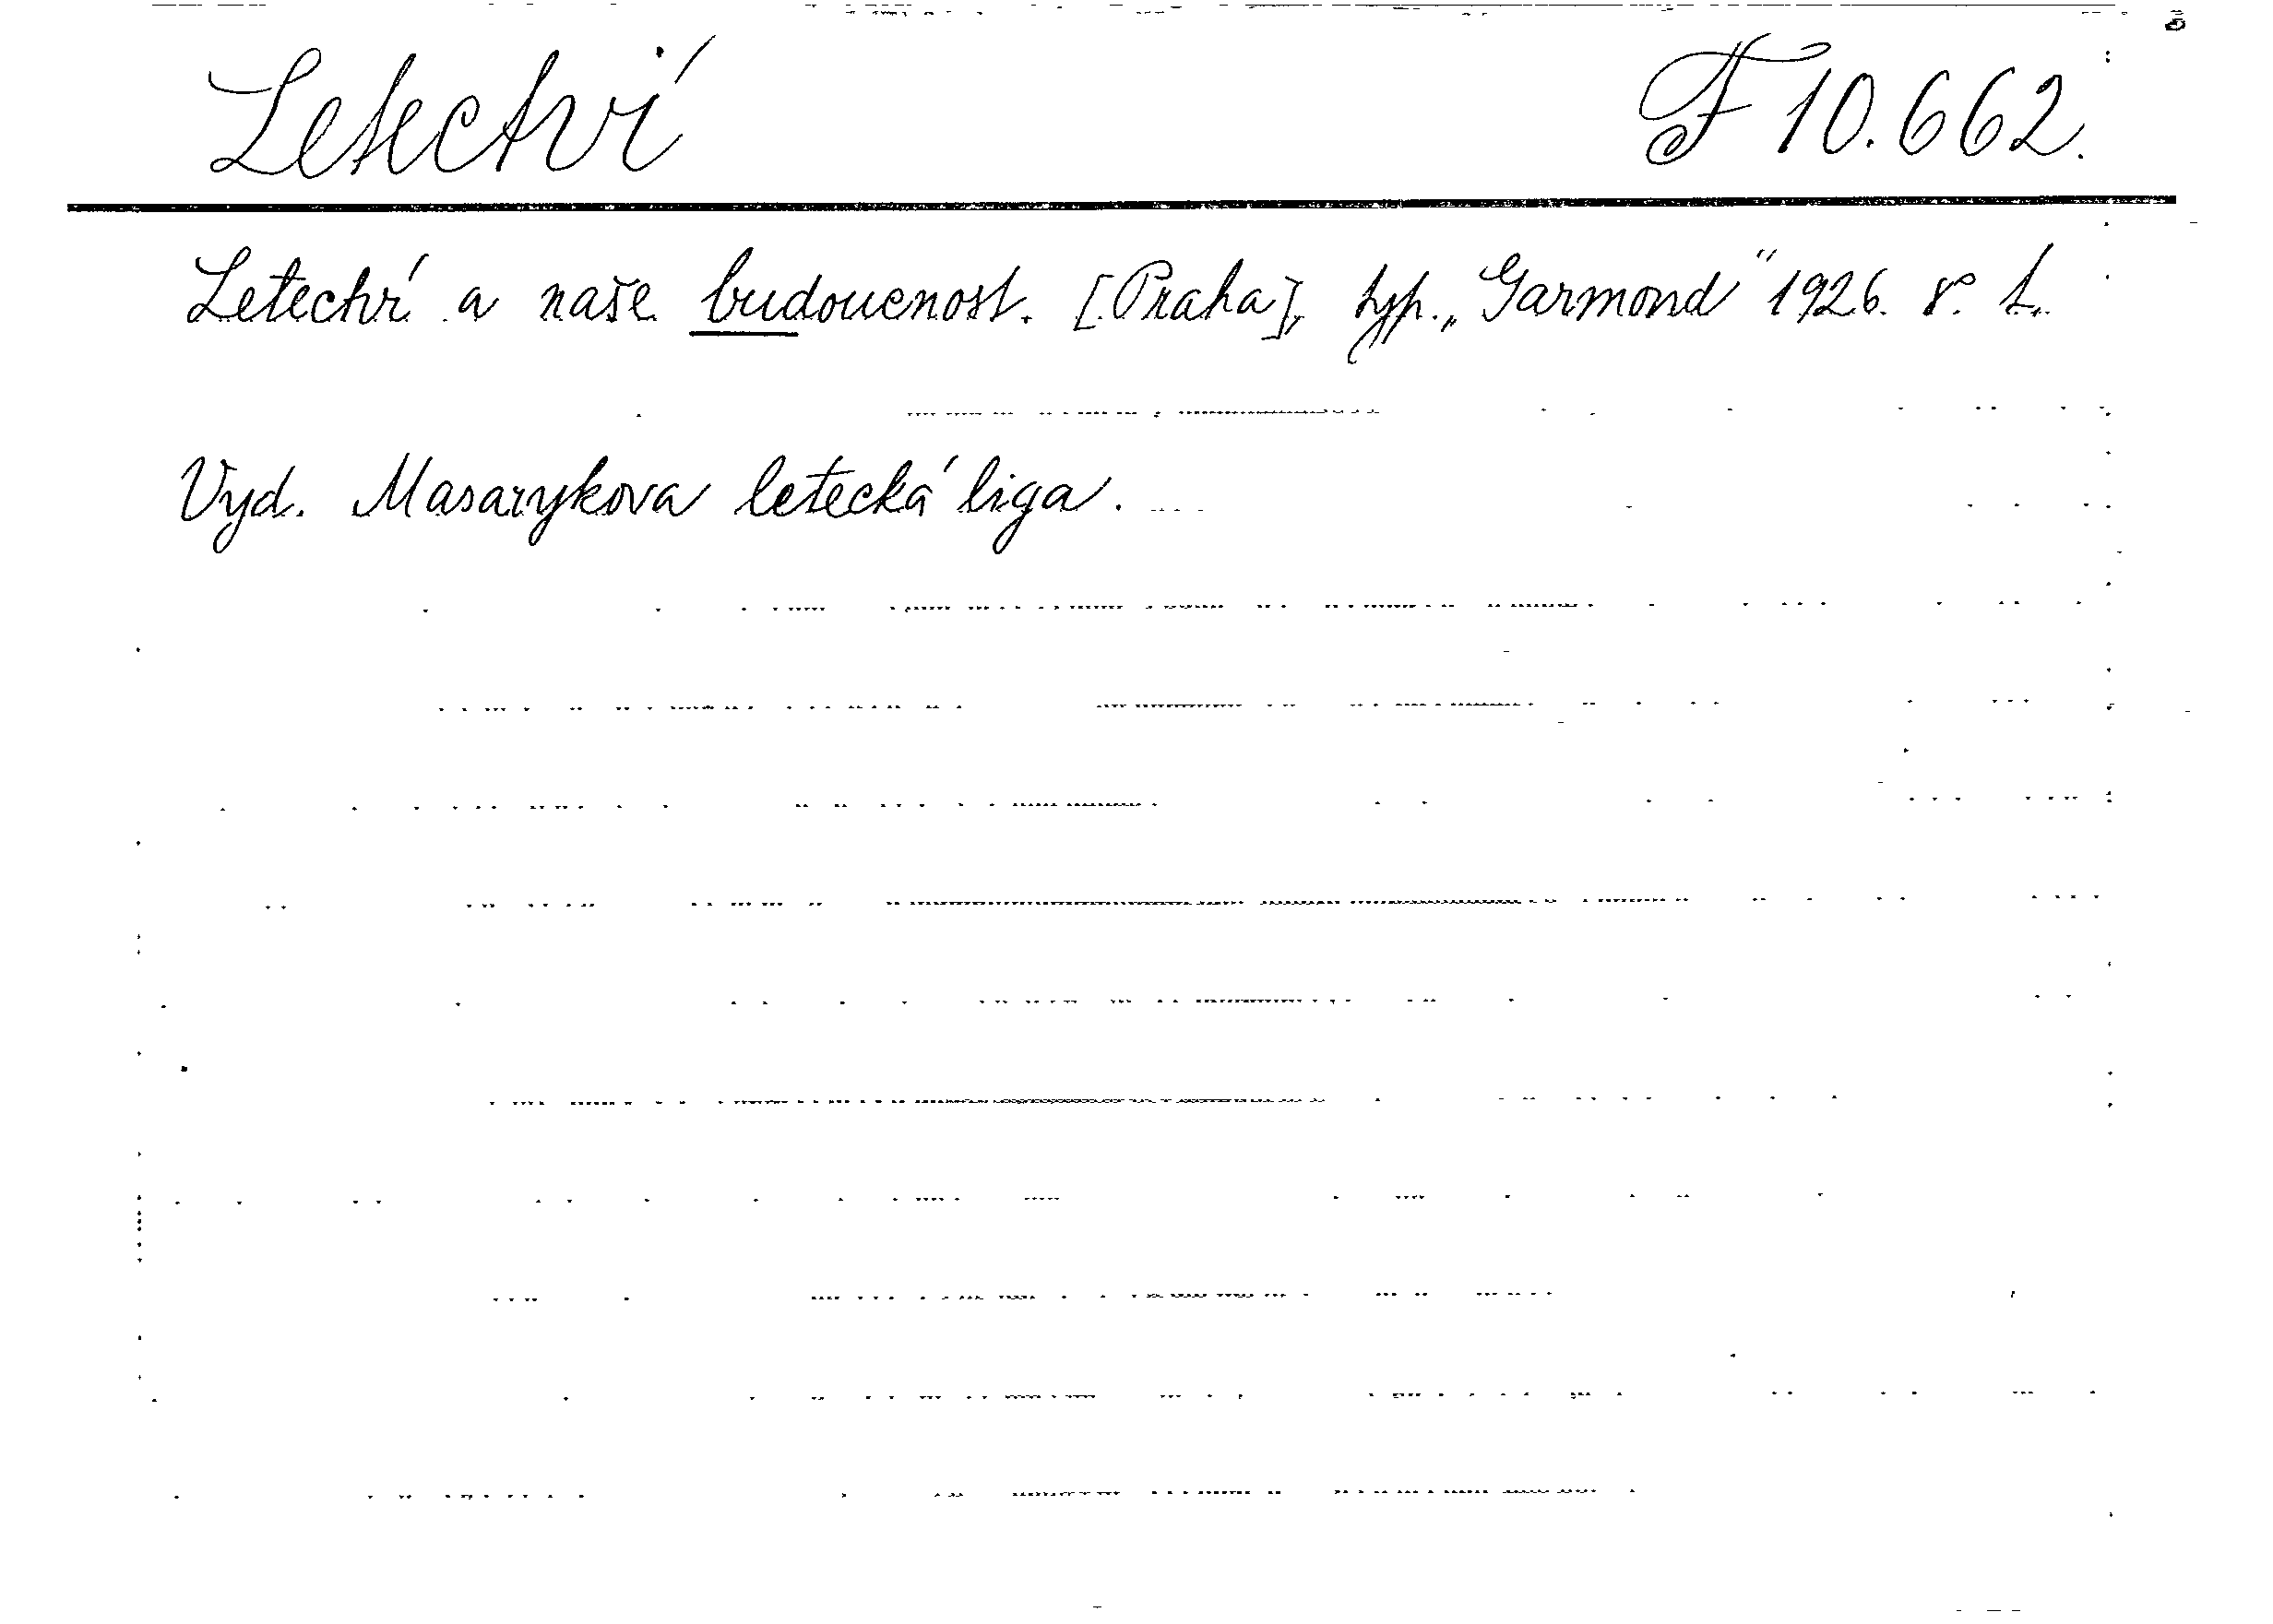 Letectví F 10.662.
Letectví a naše budoucnost. [Praha], typ. „Garmond" 1926. 8°. L.
Vyd. Masarykova letecká liga.